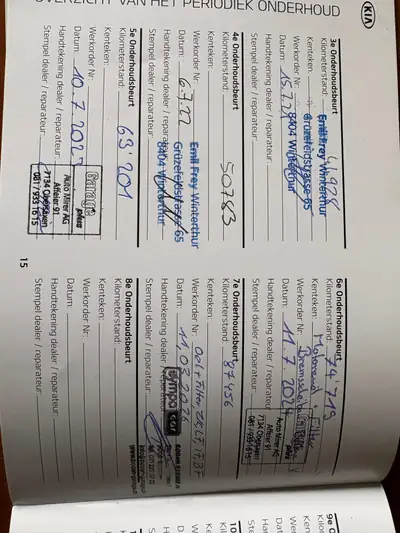 KIA
OVERZICHT VAN HET PERIODIEK ONDERHOUD
3e Onderhoudsbeurt
Kilometerstand:
Kenteken:
Werkorder Nr:
Datum: 15.7.21
Handtekening dealer / reparateur:
Stempel dealer / reparateur:
Emil Frey Winterthur
Grüzefeldstrasse 65
8404 Winterthur
4e Onderhoudsbeurt
Kilometerstand: 50783
Kenteken:
Werkorder Nr:
Datum: 6.7.22
Handtekening dealer / reparateur:
Stempel dealer / reparateur:
Emil Frey Winterthur
Grüzefeldstrasse 65
8404 Winterthur
5e Onderhoudsbeurt
Kilometerstand: 63'201
Kenteken:
Werkorder Nr:
Datum: 10.7.2023
Handtekening dealer / reparateur:
Stempel dealer / reparateur:
Garage
plus
Auto Mirer AG
Affeier 91
7134 Obersaxen
081/933 16 15
15
6e Onderhoudsbeurt
Kilometerstand: 74'719
Kenteken: Motorenöl + Filter
Werkorder Nr:
Datum: 11.7.2024
Handtekening dealer / reparateur:
Stempel dealer / reparateur:
plus
Auto Mirer AG
Affeier 91
7134 Obersaxen
081/933 16 15
7e Onderhoudsbeurt
Kilometerstand: 87456
Kenteken:
Werkorder Nr: Oel + Filter
Datum: 11.03.2026
Handtekening dealer / reparateur:
Stempel dealer / reparateur:
sympa car
8e Onderhoudsbeurt
Kilometerstand:
Kenteken:
Werkorder Nr:
Datum:
Handtekening dealer / reparateur:
Stempel dealer / reparateur:
9e O
Kilom
Kente
Werk
Datum
Hand
Stem
10